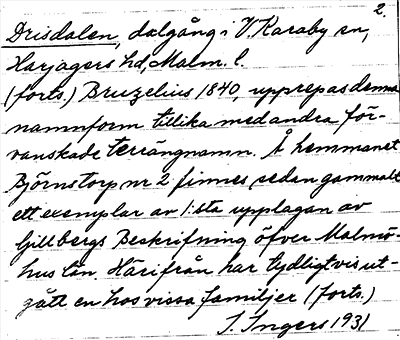 2.
Drisdalen, dalgång i V. Karaby sn,
Harjagers hd, Malm. l.
(forts.) Bruzelius 1840, upprepas denna
namnform tillika med andra för-
vanskade terrängnamn. Å hemmanet
Björnstorp nr 2 finnes sedan gammalt
ett exemplar av 1:sta upplagan av
Gillbergs Beskrifning öfver Malmö-
hus län. Härifrån har tydligtvis ut-
gått en hos vissa familjer (forts.)
I. Ingers 1931